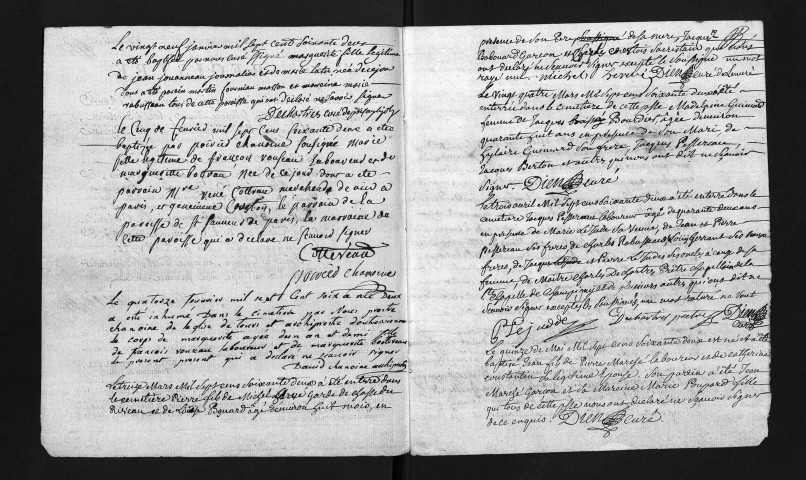 Le vingt neuf janvier mil sept cent soixante deux
a été baptisé par nous curé soussigné marguerite fille legitime
de jean jouanneau journalier et de marie née de ce jour
dont a été parain martin fournier masson et maraine marie
rabusseau tous de cette paroisse qui ont declaré ne savoir signer
Le Cinq de fevrier mil sept Cens soixante deux a ete
baptisee par poirié chanoine soussigné marie
fille legitime de françois voureau laboureur et de
marguerite bottreau nee de ce jour dont a ete
parain Mre rené Cotteau marchand de vin a
paris, et geneviève le parain de la
paroisse de St de paris, la maraine de
cette paroisse qui a declare ne scavoir signer
Cottereau
poirié chanoine
Le quatorze fevrier mil sept Cent soix a nte deux
a été inhumé Dans le cimetiere par Nous pretre
chanoine de l'eglise de tours et archipretre
le corps de marguerite agée dun an et demi fille
de francois voureau laboureur et de marguerite bottereau
le present present qui a declare ne scavoir signer
David chanoine
Le treize Mars Mil Sept cens Soixante deux a été enterré dans
le cimetiere Pierre fils de Michel Garde de chasse du
Ruseau et de Louise Bonard âgé d'environ huit mois, en
presence de Son Pere de la mere, Jacques
Garçon et
ont declaré ne scavoir Signer excepté le Soussigné un mot
rayé nul. michel hervé Dien Curé de Lemeré
Le Vingt quatre Mars Mil Sept cens Soixante deux a été
enterrée dans le cimetiere de cette psse Madelaine Guimard
femme de Jacques Bourdais âgée d'environ
quarante huit ans en presence de Son Mari de
hylaire Guimard Son frere, Jacques Passereau
Jacques Berton et autres qui nous ont dit ne scavoir
Signer. Dien Curé
Le trois avril Mil Sept cens Soixante deux a été enterré dans le
cimetiere Jacques Passereau Laboureur âgé de quarante deux ans
en presence de Marie Le Jude Sa Veuve, de Jean et Pierre
Passereau Ses freres de Charles Rabusseau et Louis Gerrant Ses beaux
freres, de Jacques et Pierre Le Jude
femme de Maitre Charles Desbartres Prêtre Chapellain de la
Ste Chapelle de Champigny et de plusieurs autres qui ont dit ne
Scavoir Signer excepté les Soussignés, un mot raturé ne Vaut
P. Lejudde Desbartres pretre Dien
curé
Le quinze de Mai Mil Sept cens Soixante deux est né et a été
baptisé Jean fils de Pierre Marese laboureur et de catherine
constantin Sa legitime Epouse. Son parrein a été Jean
Marese Garçon et la Maraine Marie Poupard fille
qui tous de cette psse nous ont declaré ne scavoir Signer
de ce enquis. Dien Curé.